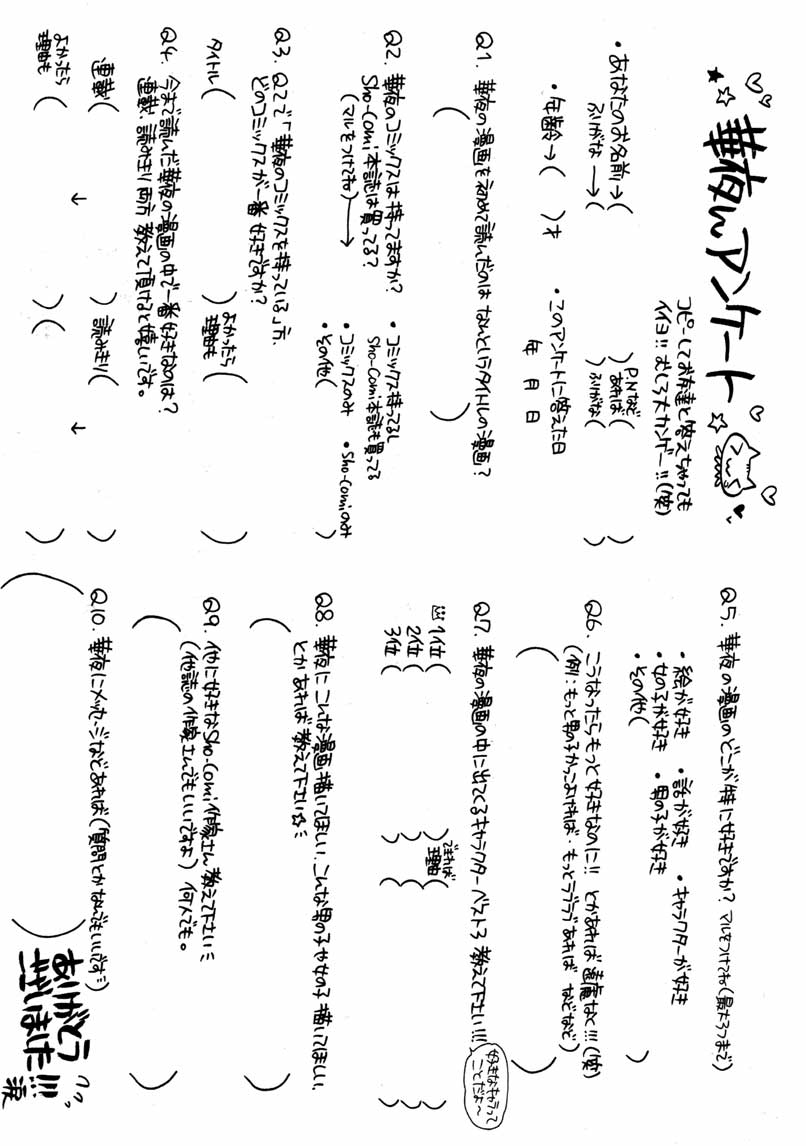 華夜んアンケート
コピーしてお友達と答えちゃっても
イイヨ!!むしろ大カンゲー!!(笑)
・あなたのお名前→(
ふりがな→(
P.Nなど
あれば(
ふりがな(
)
)
・年齢→( )才
・このアンケートに答えた日
年 月 日
Q1. 華夜の漫画を初めて読んだのはなんというタイトルの漫画?
( )
Q2. 華夜のコミックスは持ってますか?
Sho-Comi本誌は買ってる?
(マルをつけてね)→
・コミックス持ってるし
Sho-Comi本誌も買ってる
・コミックスのみ ・Sho-Comiのみ
・その他( )
Q3. Q2で「華夜のコミックスを持っている」方、
どのコミックスが一番好きですか?
タイトル( )
よかったら
理由も( )
Q4. 今まで読んだ華夜の漫画の中で一番好きなのは?
連載、読みきり両方教えて頂けると嬉しいです。
連載( ) 読みきり( )
よかったら
理由も( ↓ ) ( ↓ )
Q5. 華夜の漫画のどこが特に好きですか? マルをつけてね(最大3つまで)
・絵が好き ・話が好き ・キャラクターが好き
・女の子が好き ・男の子が好き
・その他( )
Q6. こうなったらもっと好きなのに!! とかあれば遠慮なく!!!(笑)
(例:もっと男の子かっこよければ・もっとラブラブあれば などなど)
( )
Q7. 華夜の漫画の中に出てくるキャラクターベスト3 教えて下さい!!!
好きなキャラって
ことだよ〜
できれば
理由
1位( )( )
2位( )( )
3位( )( )
Q8. 華夜に こんな漫画描いてほしい、こんな男の子や女の子 描いてほしい、
とかあれば 教えて下さい☆ミ
( )
Q9. 他に好きなSho-Comi作家さん 教えて下さいミ
(他誌の作家さんでもいいですよ) 何人でも。
( )
Q10. 華夜にメッセージなどあれば(質問とかなんでもいいですミ)
( )
ありがとう
ございました!!!
涙